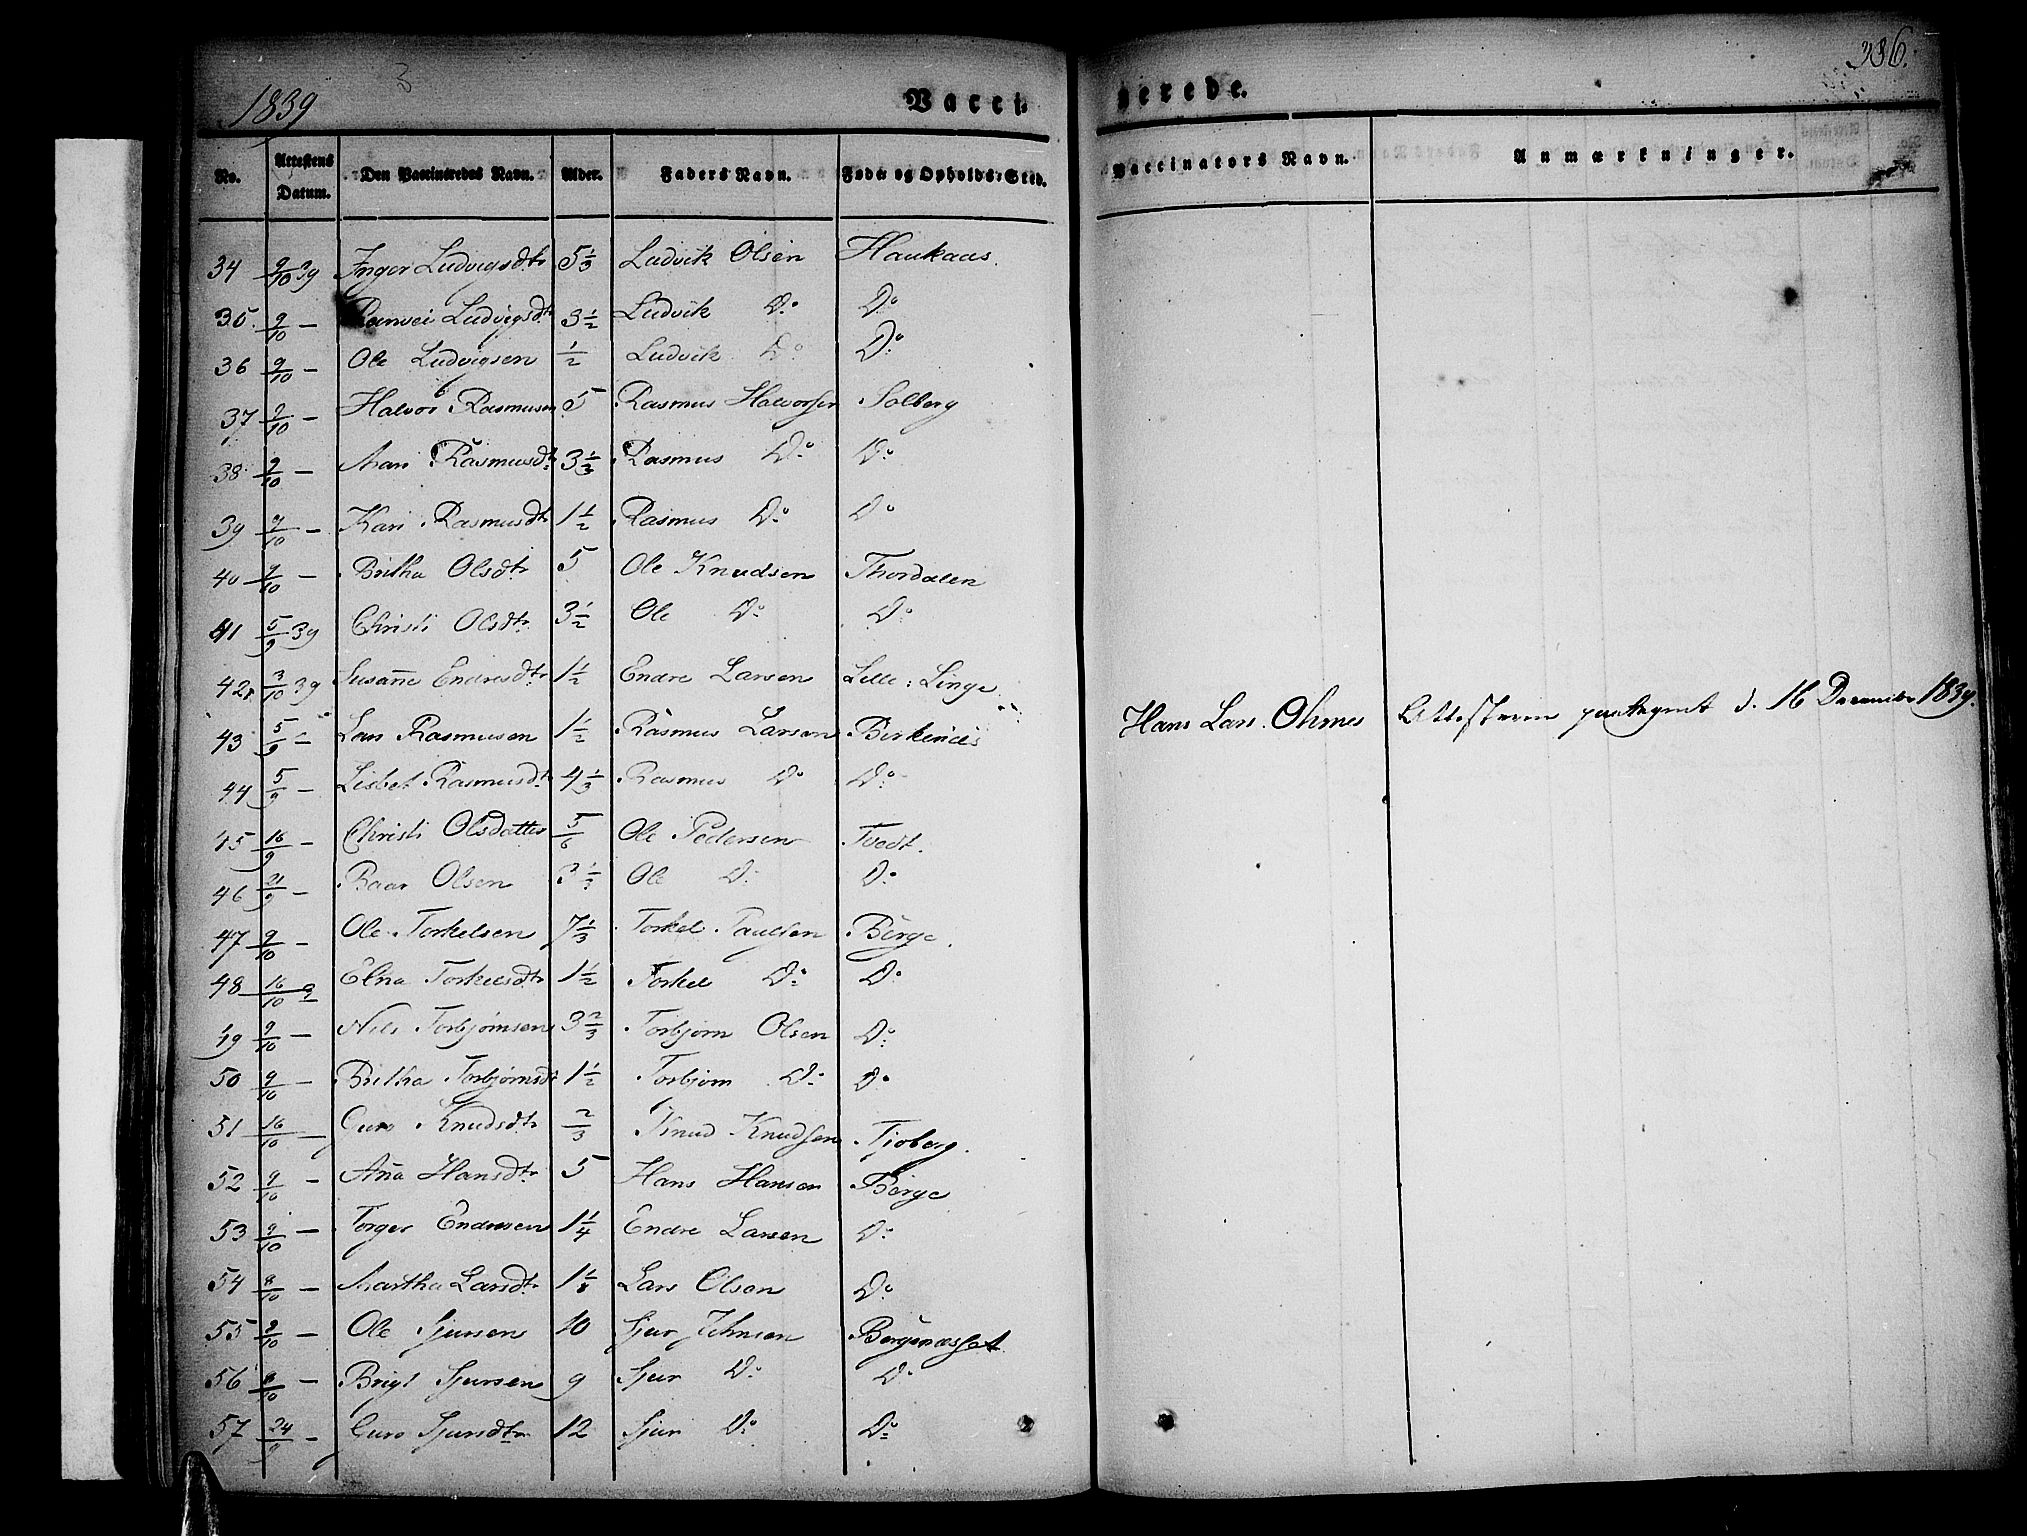 1839
3
Vacci
nerede.
386.
No. Attestens Datum. Den Vaccineredes Navn. Alder. Faders Navn. Føde og Opholds-Sted. Vaccinators Navn. Anmærkninger.
34 9/10 39 Inger Ludvigsdtr 5 1/3 Ludvik Olsen Haukaas.
35 9/10 — Ranvei Ludvigsdtr 3 1/2 Ludvik Do Do
36 9/10 — Ole Ludvigsen 1/2 Ludvik Do Do
37 9/10 — Halvor Rasmusen 5 Rasmus Halvorsen Solberg
38 9/10 — Mari Rasmusdtr 3 1/3 Rasmus Do Do
39 9/10 — Kari Rasmusdtr 1 1/2 Rasmus Do Do
40 9/10 — Britha Olsdtr 5 Ole Knudsen Thordalen
41 5/9 39 Christi Olsdtr 3 1/2 Ole Do Do
42 3/10 39 Susanne Endresdtr 1 1/2 Endre Larsen Lille: Linge
43 5/9 — Lars Rasmusen 1 1/2 Rasmus Larsen Birkenæs Hans Lars. Ohmes Attesterne d. 16 December 1839.
44 5/9 — Lisbet Rasmusdtr 4 1/3 Rasmus Do Do
45 16/9 — Christi Olsdatter 5/6 Ole Pedersen Tvedt.
46 21/9 — Baar Olsen 3 1/3 Ole Do Do
47 9/10 — Ole Torkelsen 7 1/3 Torkel Paulsen Berge.
48 16/10 Elna Torkelsdtr 1 1/2 Torkel Do Do
49 9/10 — Nils Torbjørnsen 3 2/3 Torbjørn Olsen Do
50 9/10 — Britha Torbjørnsdt 1 1/2 Torbjørn Do Do
51 16/10 — Guro Knudsdtr 2/3 Knud Knudsen Tjoberg.
52 9/10 — Anna Hansdtr 5 Hans Hansen Berge
53 9/10 — Torger Endresen 1 1/4 Endre Larsen Do
54 8/10 — Martha Larsdtr 1 1/3 Lars Olsen Do
55 9/10 — Ole Sjursen 10 Sjur Johnsen Bergenæsset
56 8/10 — Brigt Sjursen 9 Sjur Do Do
57 24/9 — Guro Sjursdtr 12 Sjur Do Do